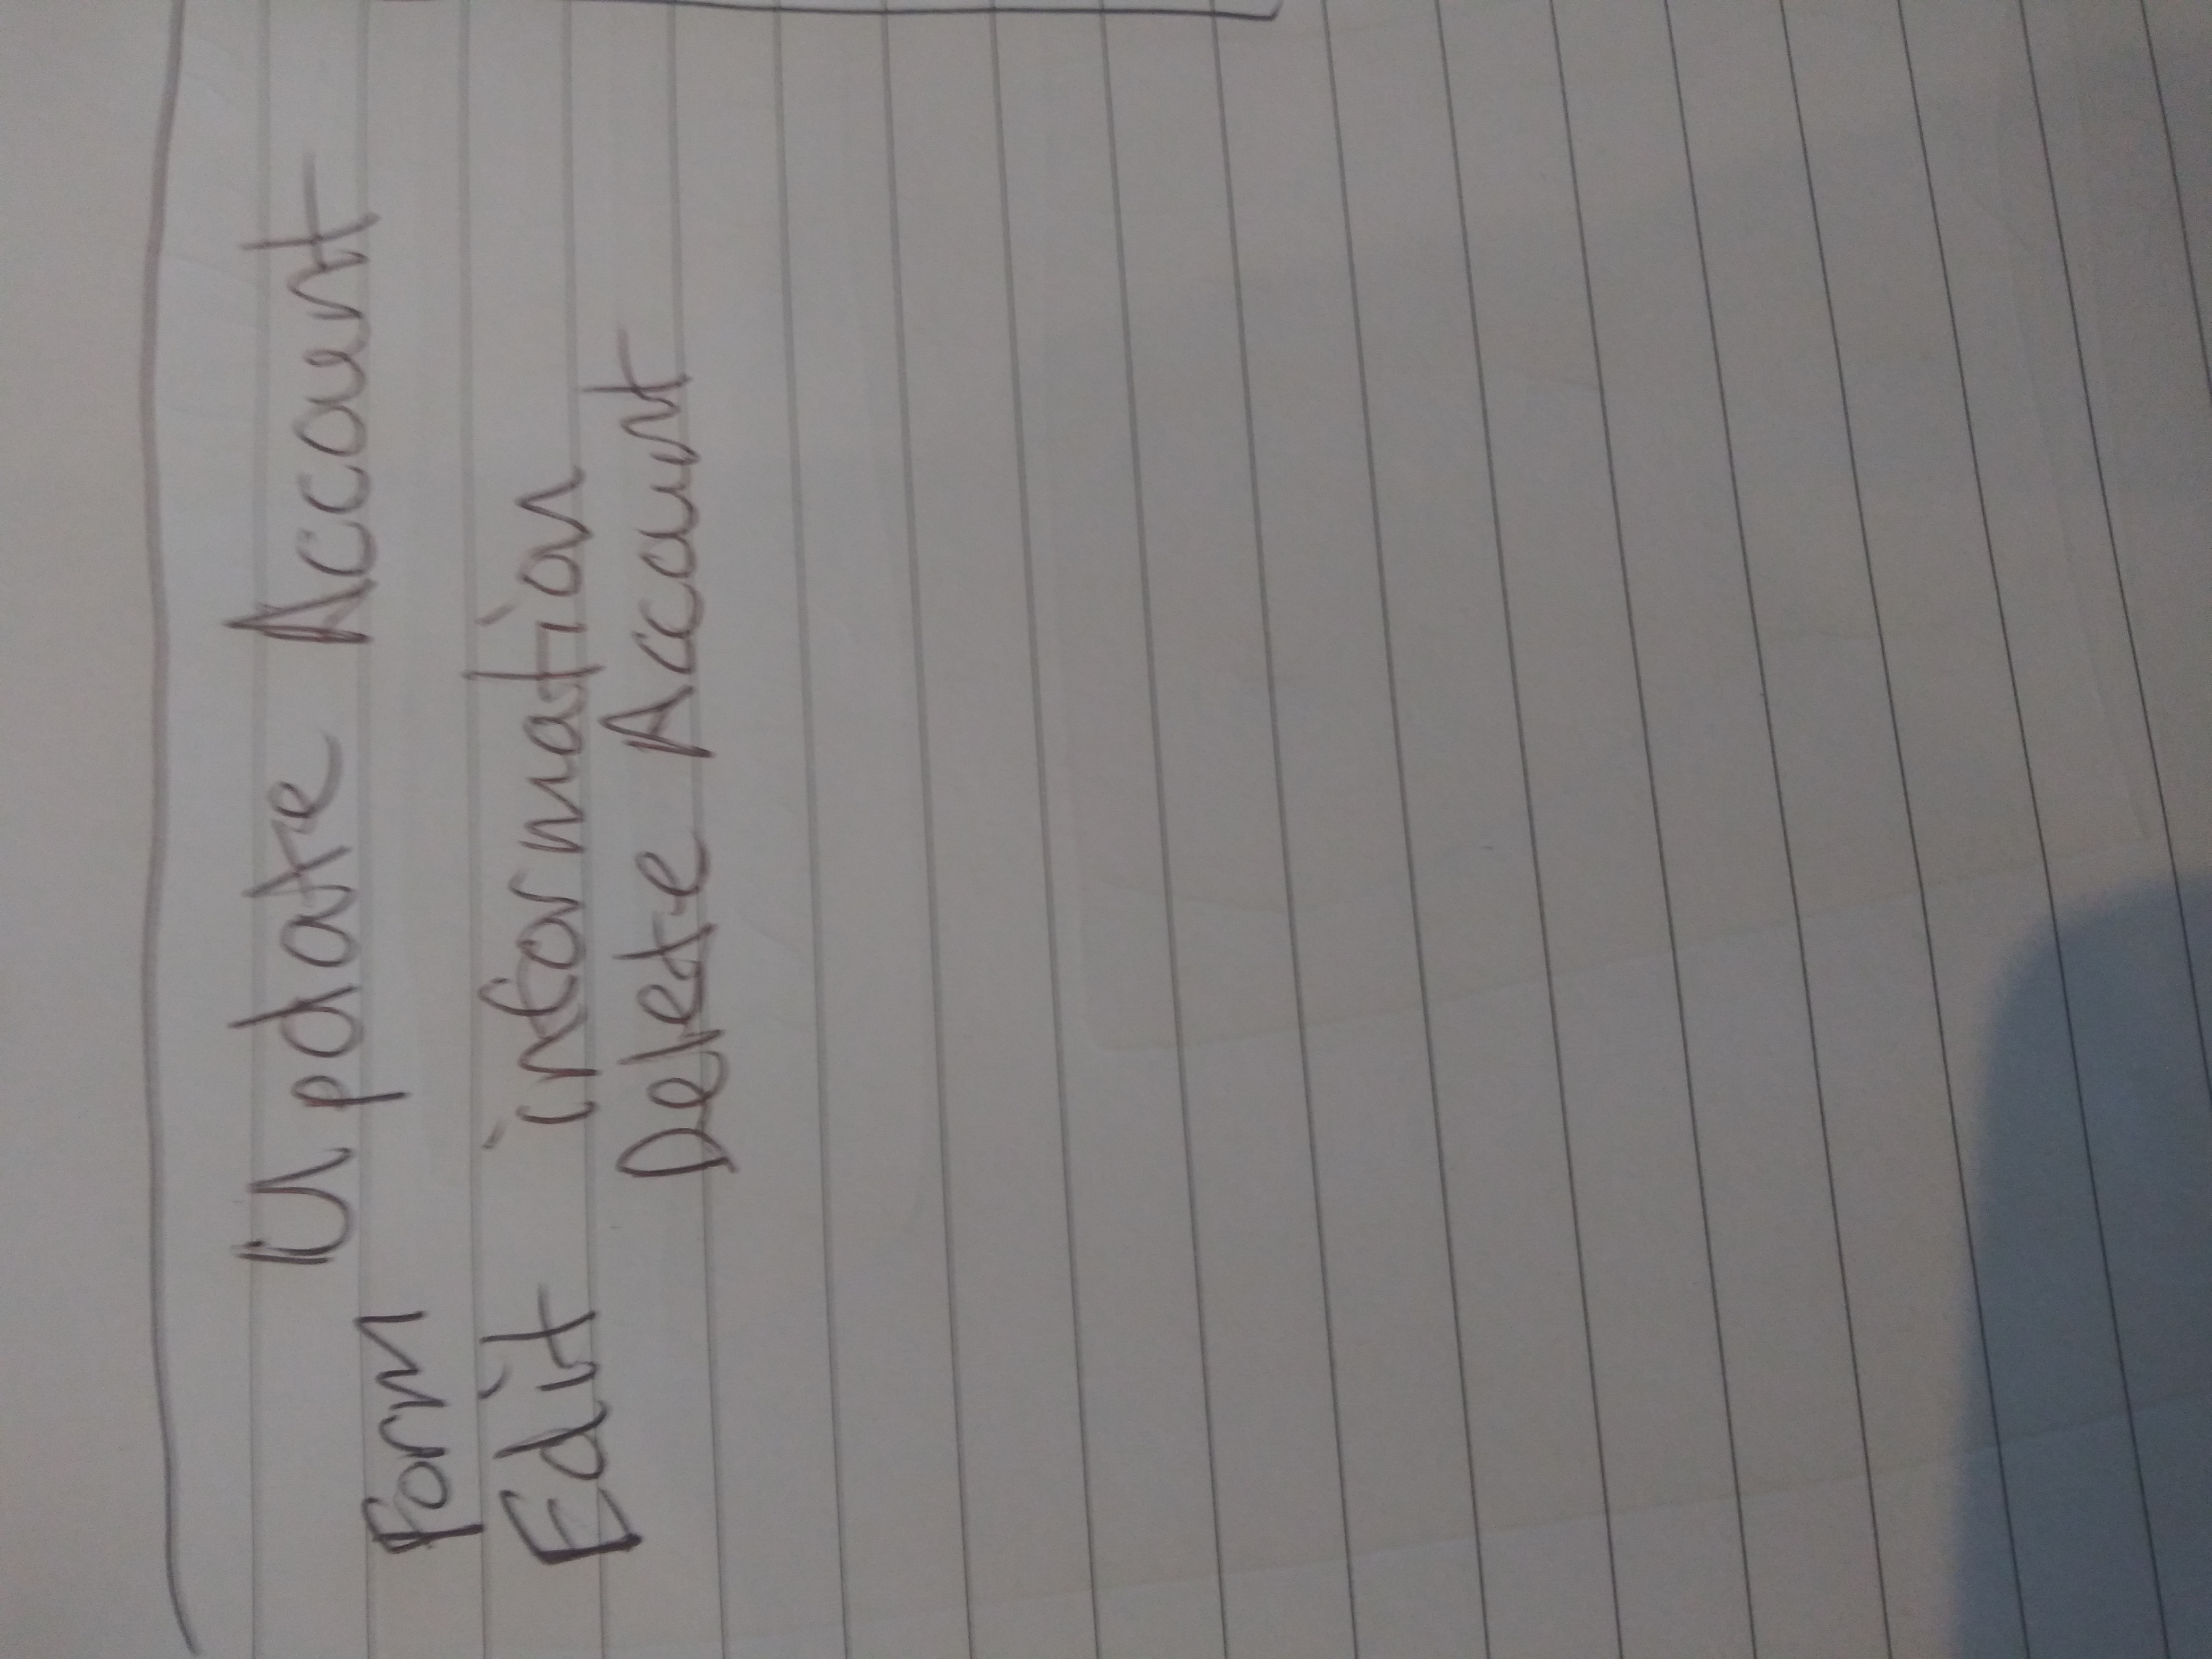 Update Account
Form
Edit information
Delete Account